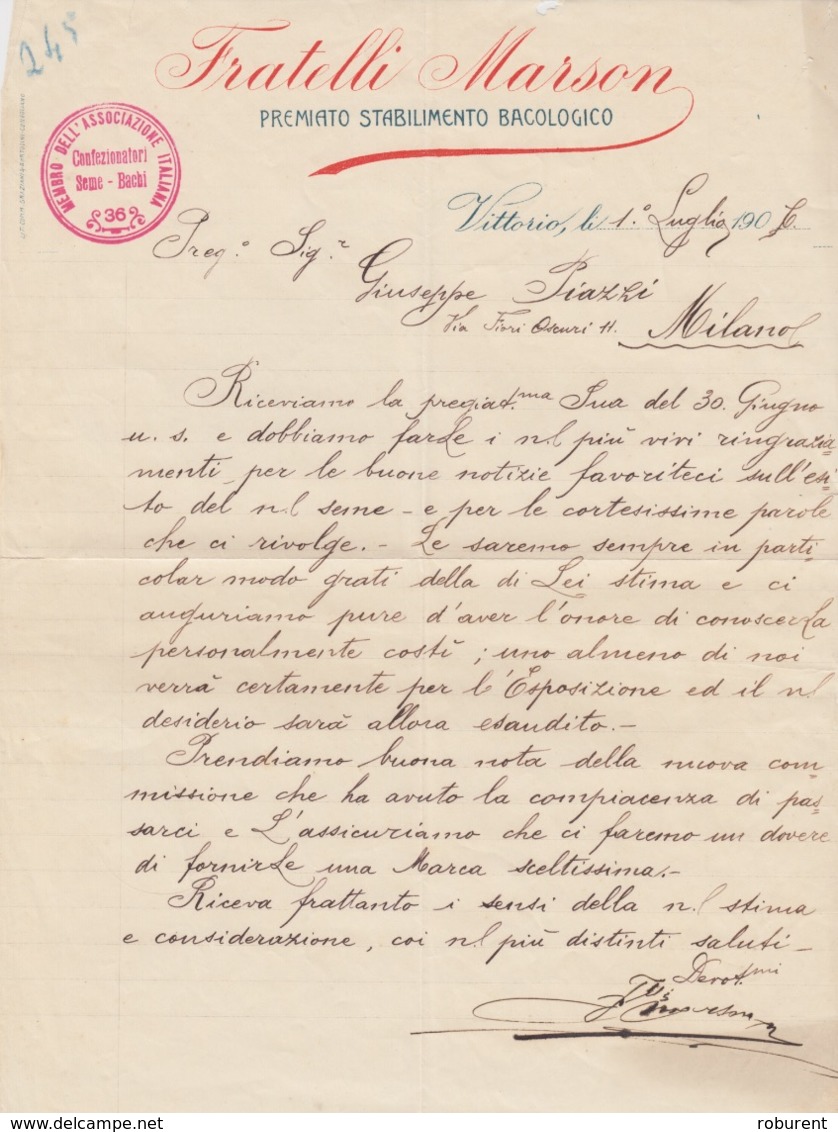 245
Fratelli Marson
PREMIATO STABILIMENTO BACOLOGICO
MEMBRO DELL'ASSOCIAZIONE ITALIANA
Confezionatori
Seme - Bachi
36
Vittorio, li 1.° Luglio 1906.
Preg.° Sig.r
Giuseppe Piazzi
Via Fiori Oscuri 11. Milano
Riceviamo la pregiat.ma Sua del 30. Giugno
u. s. e dobbiamo farLe i n/ più vivi ringrazia=
menti per le buone notizie favoriteci sull'esi=
to del n/ seme - e per le cortesissime parole
che ci rivolge. - Le saremo sempre in parti=
colar modo grati della di Lei stima e ci
auguriamo pure d'aver l'onore di conoscerLa
personalmente costì; uno almeno di noi
verrà certamente per l'Esposizione ed il n/
desiderio sarà allora esaudito. -
Prendiamo buona nota della nuova com=
missione che ha avuto la compiacenza di pas=
sarci e L'assicuriamo che ci faremo un dovere
di fornirLe una Marca sceltissima. -
Riceva frattanto i sensi della n/ stima
e considerazione, coi n/ più distinti saluti -
Devot.mi
F.lli Marson
delcampe.net
roburent